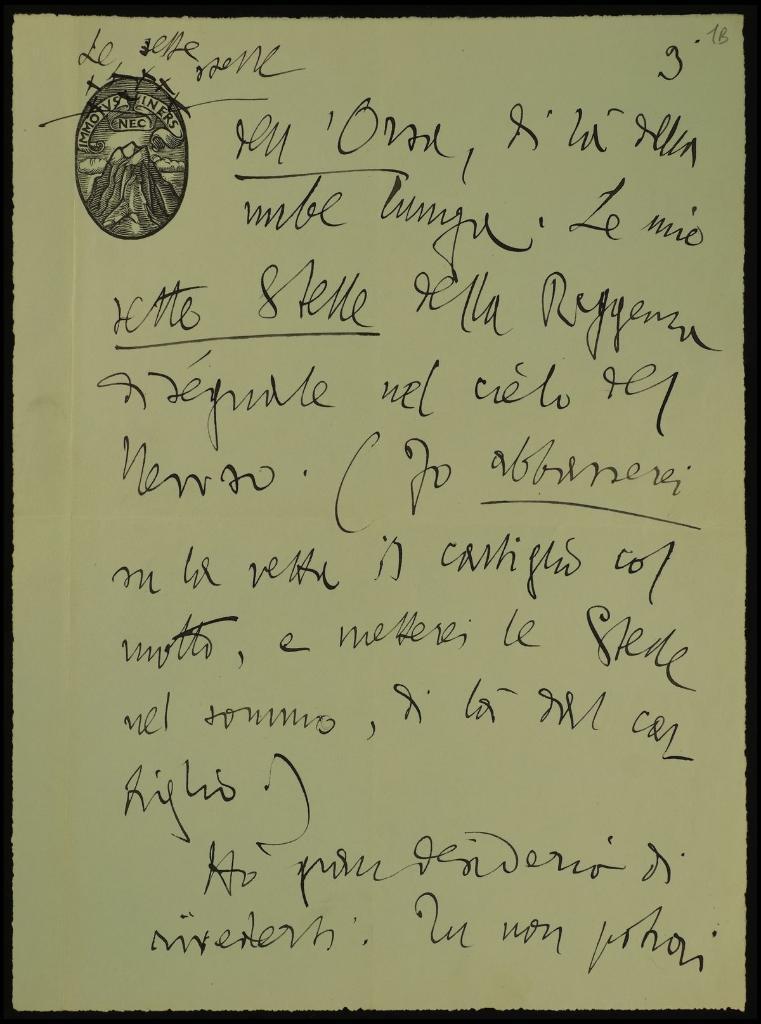 1B
3
Le sette stelle
IMMOTVS NEC INERS
dell'Orsa, di là della
nube lunga. Le mie
sette Stelle della Reggenza
diségnale nel cielo del
Nevoso. (Io abbasserei
su la vetta il cartiglio col
motto, e metterei le Stelle
nel sommo, di là dal car-
tiglio.)
Hò gran desiderio di
rivederti. Tu non potrai